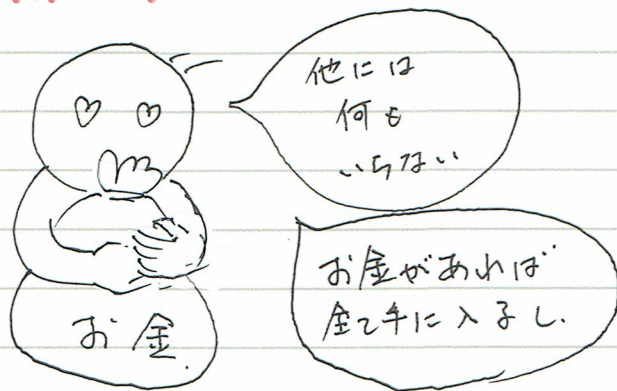 他には
何も
いらない
お金があれば
全て手に入るし、
お金